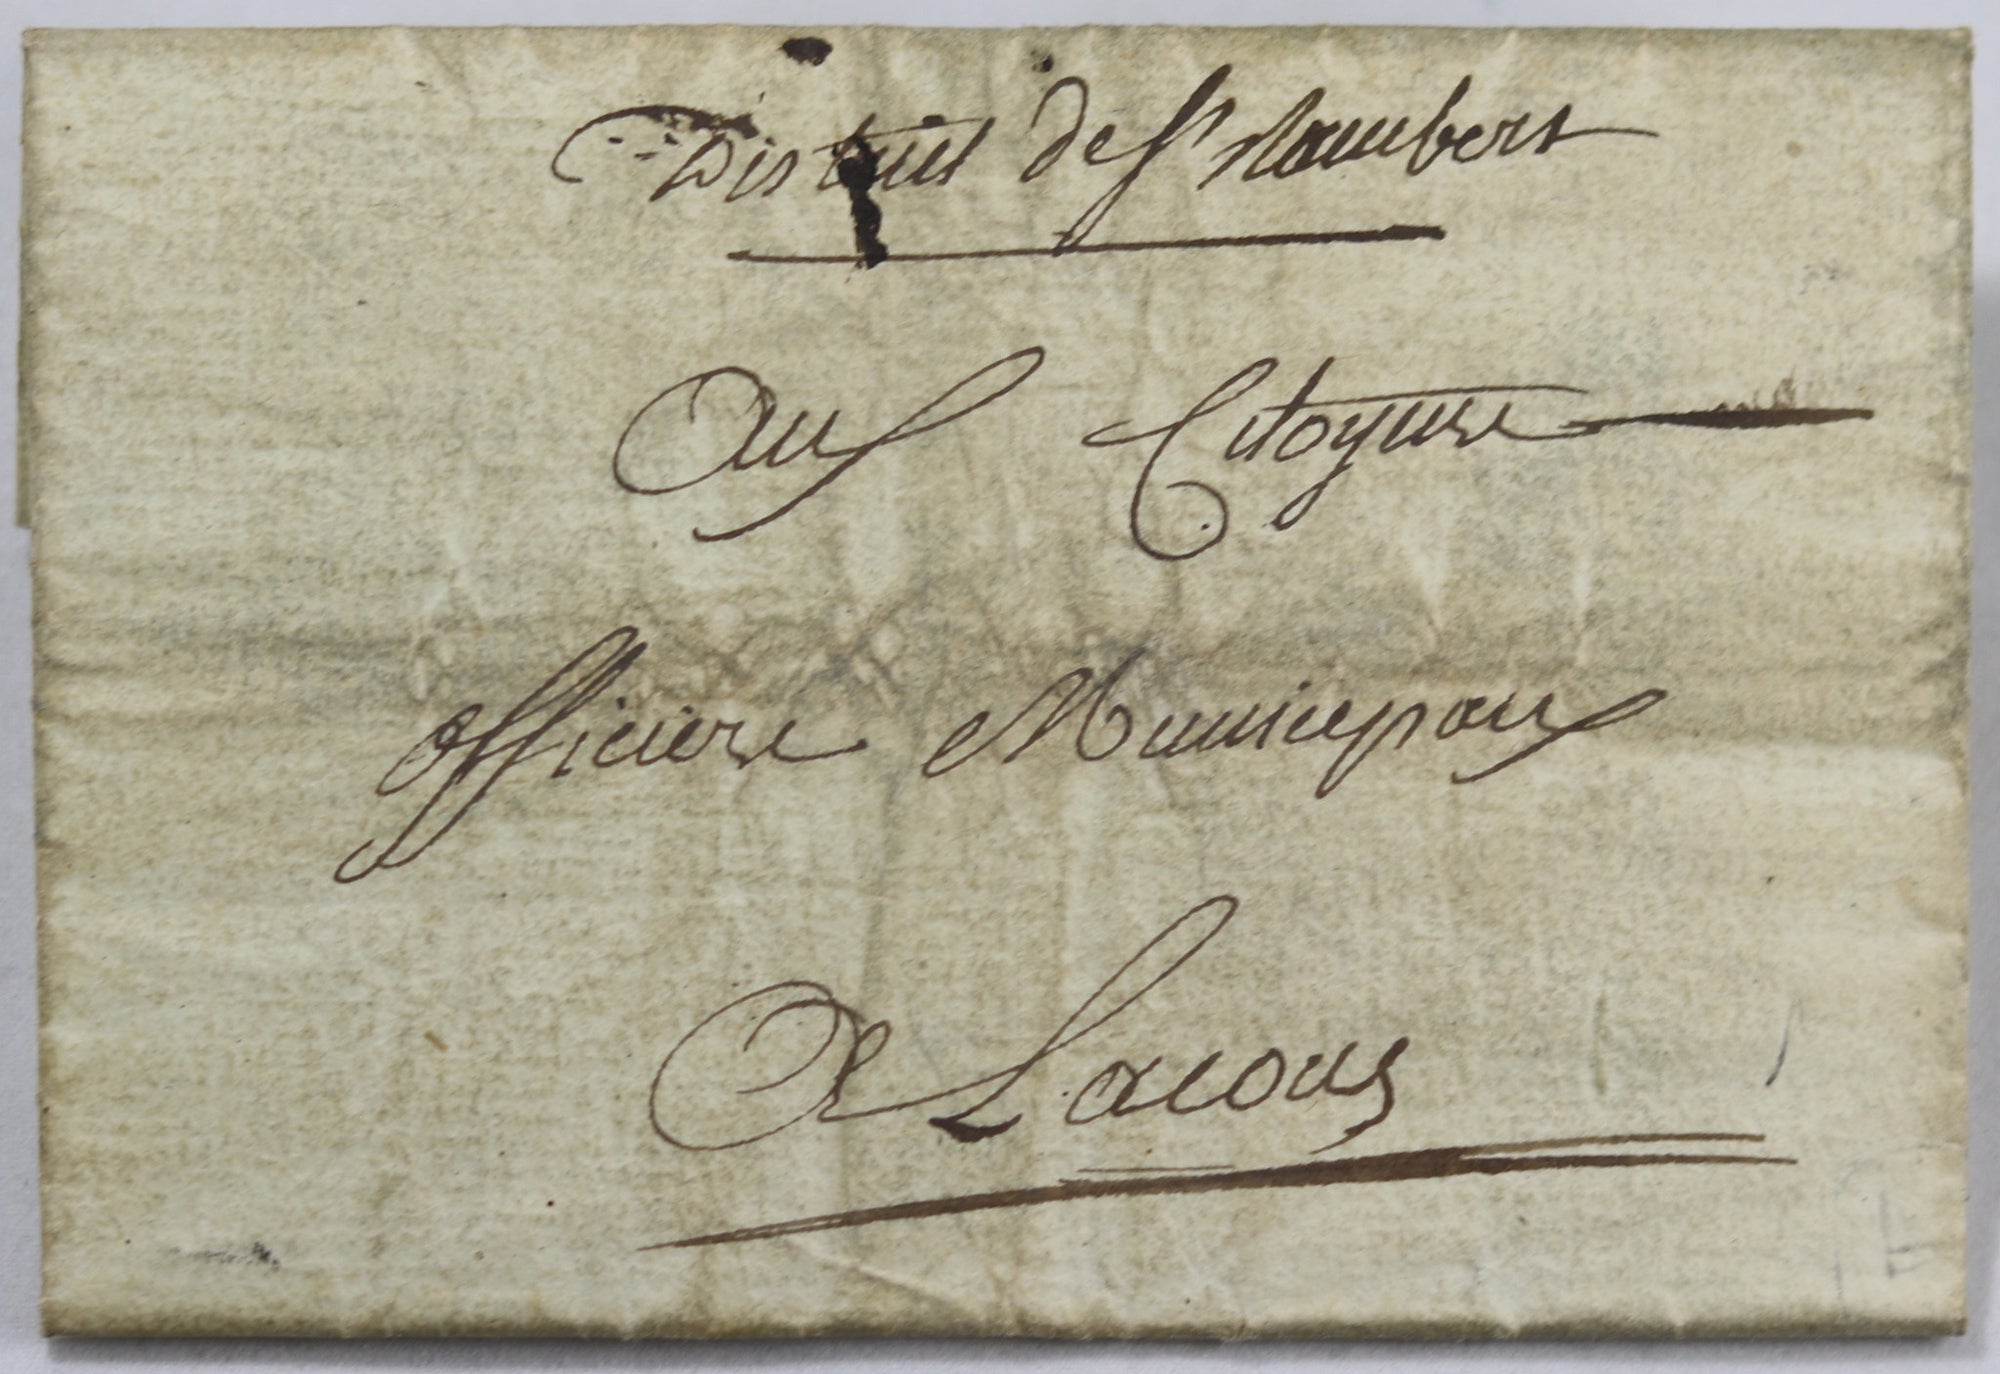 District de St Rambert
Aux Citoyens
Officiers Municipaux
A Lacoux